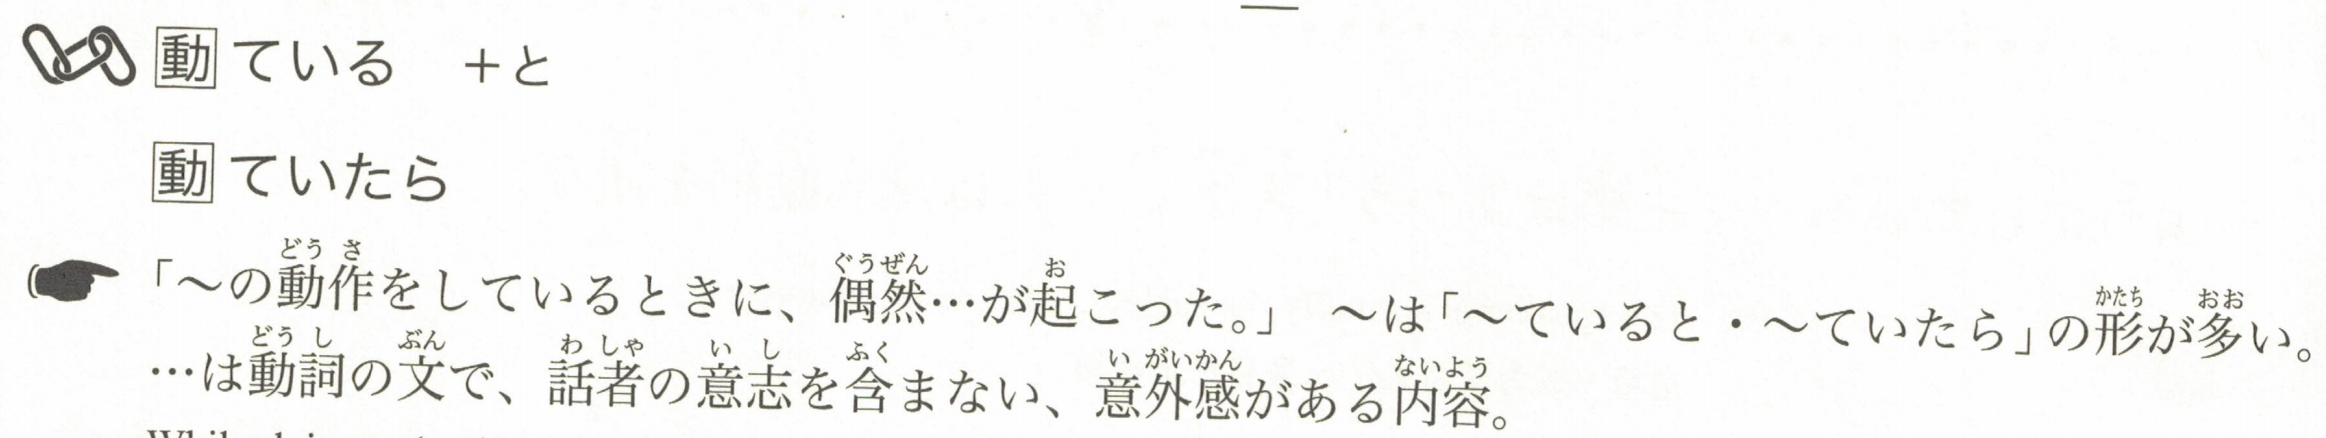 動 ている　＋と
動 ていたら
「～の動作をしているときに、偶然…が起こった。」　～は「～ていると・～ていたら」の形が多い。
…は動詞の文で、話者の意志を含まない、意外感がある内容。